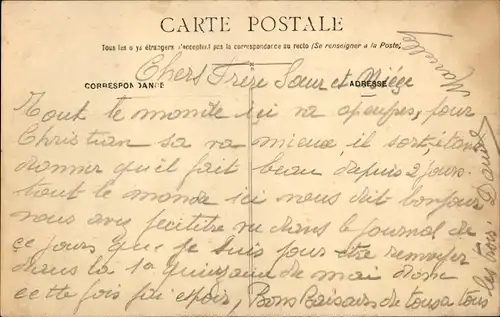 CARTE POSTALE
Tous les pays étrangers n'acceptent pas la correspondance au recto (Se renseigner à la Poste)
CORRESPONDANCE
ADRESSE
Chers Frère Sœur et Nièce
Tout le monde içi va apeupres, pour
Christian sa va mieux, il sort étan
donner qu'il fait beau depuis 2 jours.
tout le monde ici vous dit bonjour
vous avez peutitre vu dans le journal de
ce jours que je suis pour être renvoyer
dans la 1e quinzaine de mai donc
cette fois j'ai espoir, Bons Baisers de tous a tous
les trois